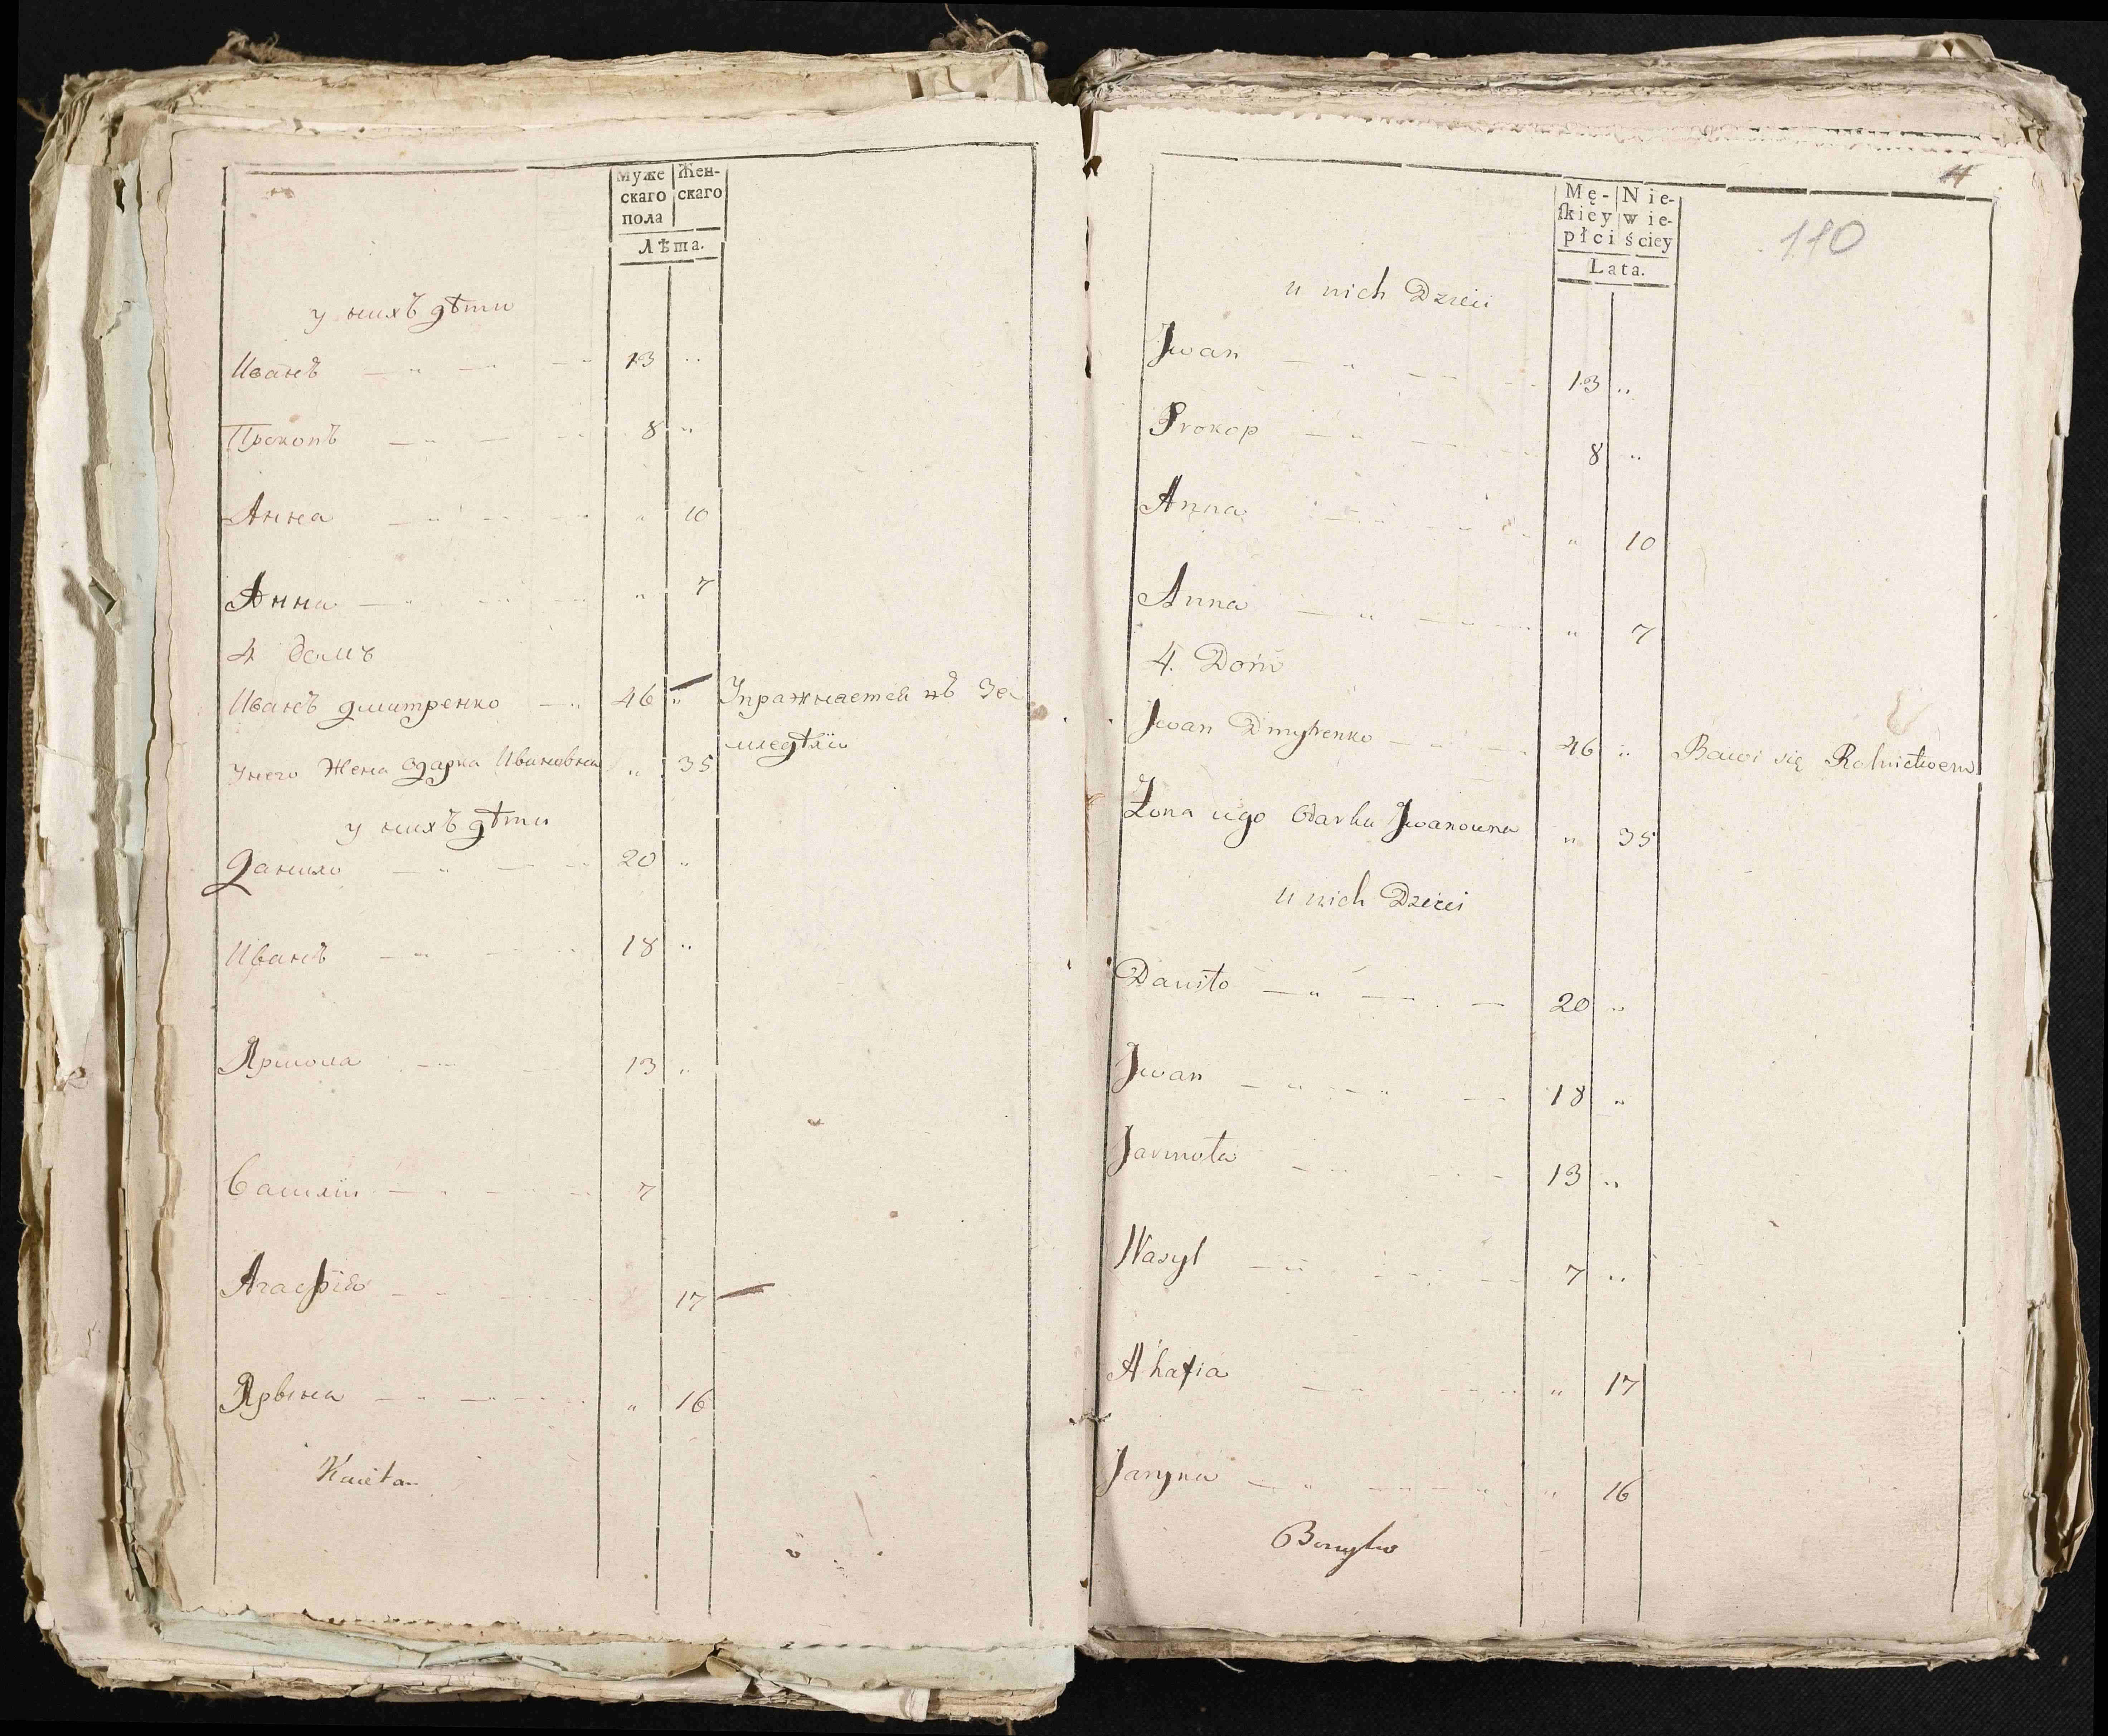 Муже Жен-
скаго скаго
пола
Лѣта.
у нихъ дѣти
Иванъ 13 "
Прокопъ 8 "
Анна " 10
Анна " 7
4 домъ
Иванъ дмитренко 46 " Упражняется въ Зе
мледѣлїи
Унего Жена Одарка Ивановна " 35
у нихъ дѣти
Данило 20 "
Иванъ 18 "
Ярмола 13 "
Василїи 7
Агафїя 17
Ярына " 16
Kaietan
11
110
Mę- Nie-
ſkiey wie-
płci ściey
Lata.
u nich Dzieci
Jwan 13 "
Prokop 8 "
Anna " 10
Anna " 7
4. Dom
Jwan Dmytrenko 46 " Bawi się Rolnictwem
Żona iego Odarka Jwanowna " 35
u nich Dzieci
Daniło 20 "
Jwan 18 "
Jarmoła 13 "
Wasyl 7 "
Ahafia " 17
Jaryna " 16